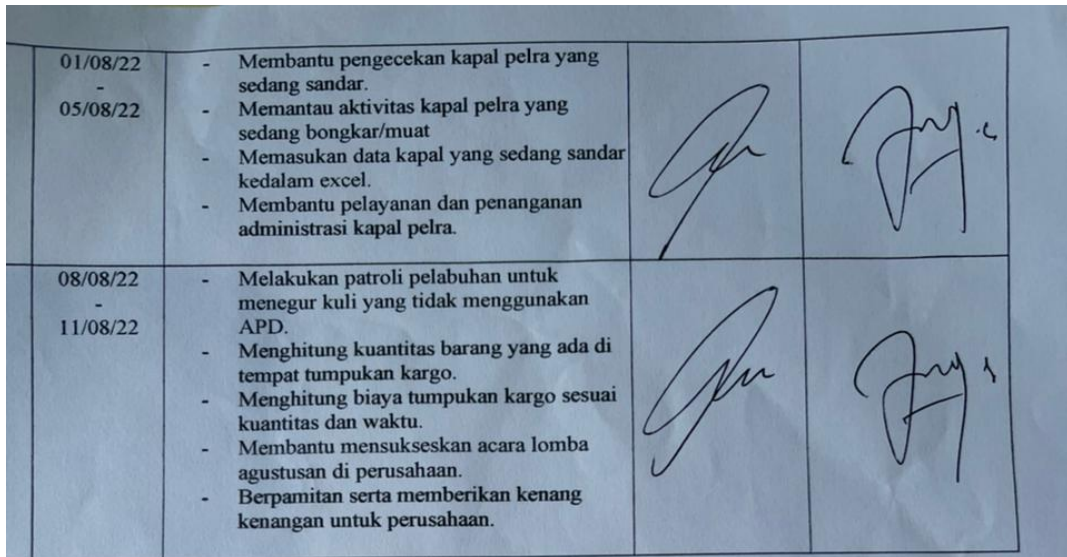 01/08/22
-
05/08/22
- Membantu pengecekan kapal pelra yang
sedang sandar.
- Memantau aktivitas kapal pelra yang
sedang bongkar/muat
- Memasukan data kapal yang sedang sandar
kedalam excel.
- Membantu pelayanan dan penanganan
administrasi kapal pelra.
08/08/22
-
11/08/22
- Melakukan patroli pelabuhan untuk
menegur kuli yang tidak menggunakan
APD.
- Menghitung kuantitas barang yang ada di
tempat tumpukan kargo.
- Menghitung biaya tumpukan kargo sesuai
kuantitas dan waktu.
- Membantu mensukseskan acara lomba
agustusan di perusahaan.
- Berpamitan serta memberikan kenang
kenangan untuk perusahaan.